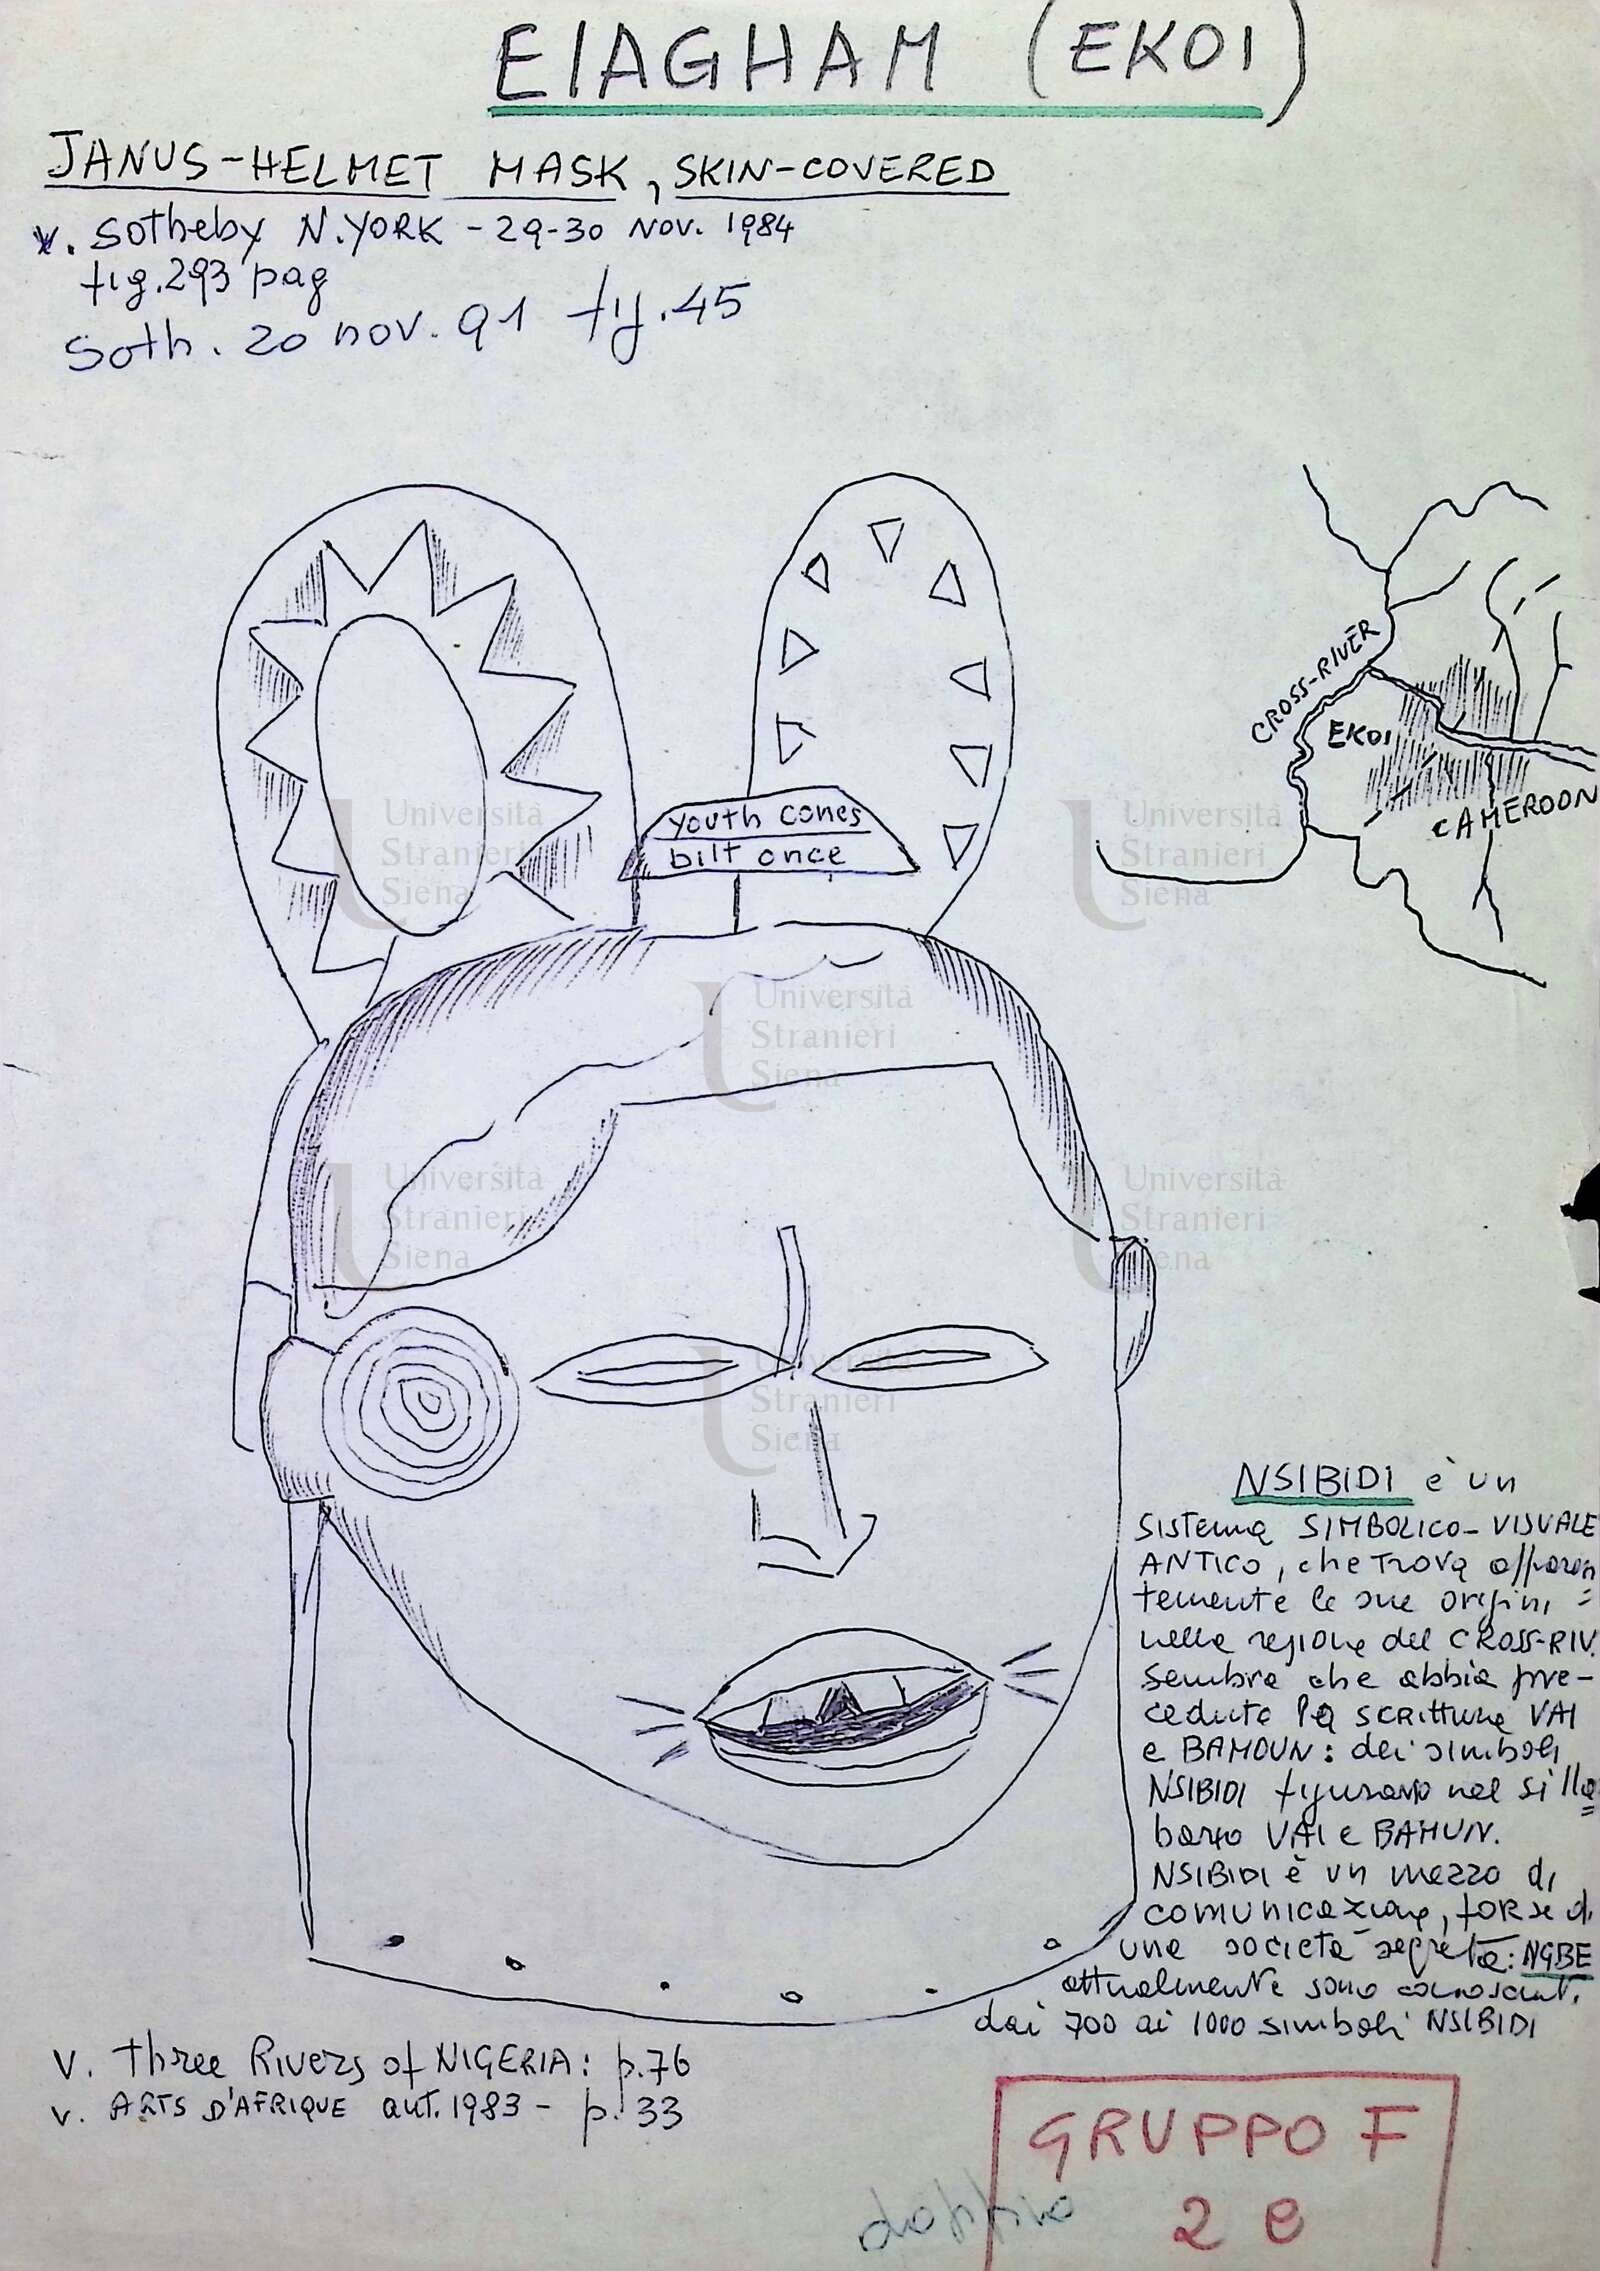 EJAGHAM (EKOI)
JANUS-HELMET MASK, SKIN-COVERED
v. Sotheby N.YORK - 29-30 NOV. 1984
fig.293 pag
Soth. 20 nov. 91 fig.45
youth comes
bilt once
CROSS-RIVER
EKOI
CAMEROON
Università
Stranieri
Siena
Università
Stranieri
Siena
Università
Stranieri
Siena
Università
Stranieri
Siena
Università
Stranieri
Siena
Università
Stranieri
Siena
NSIBIDI è un
sistema SIMBOLICO-VISUALE
ANTICO, che trova apparen
temente le sue origini =
nella regione del CROSS-RIV.
sembra che abbia pre-
ceduto la scrittura VAI
e BAMOUN: dei simboli
NSIBIDI figurano nel silla
bario VAI e BAMUN.
NSIBIDI è un mezzo di
comunicazione, forse di
una società segreta: NGBE
attualmente sono conosciuti
dai 700 ai 1000 simboli NSIBIDI
v. Three Rivers of NIGERIA: p.76
v. ARTS D'AFRIQUE aut. 1983 - p. 33
GRUPPO F
doppio 2 e